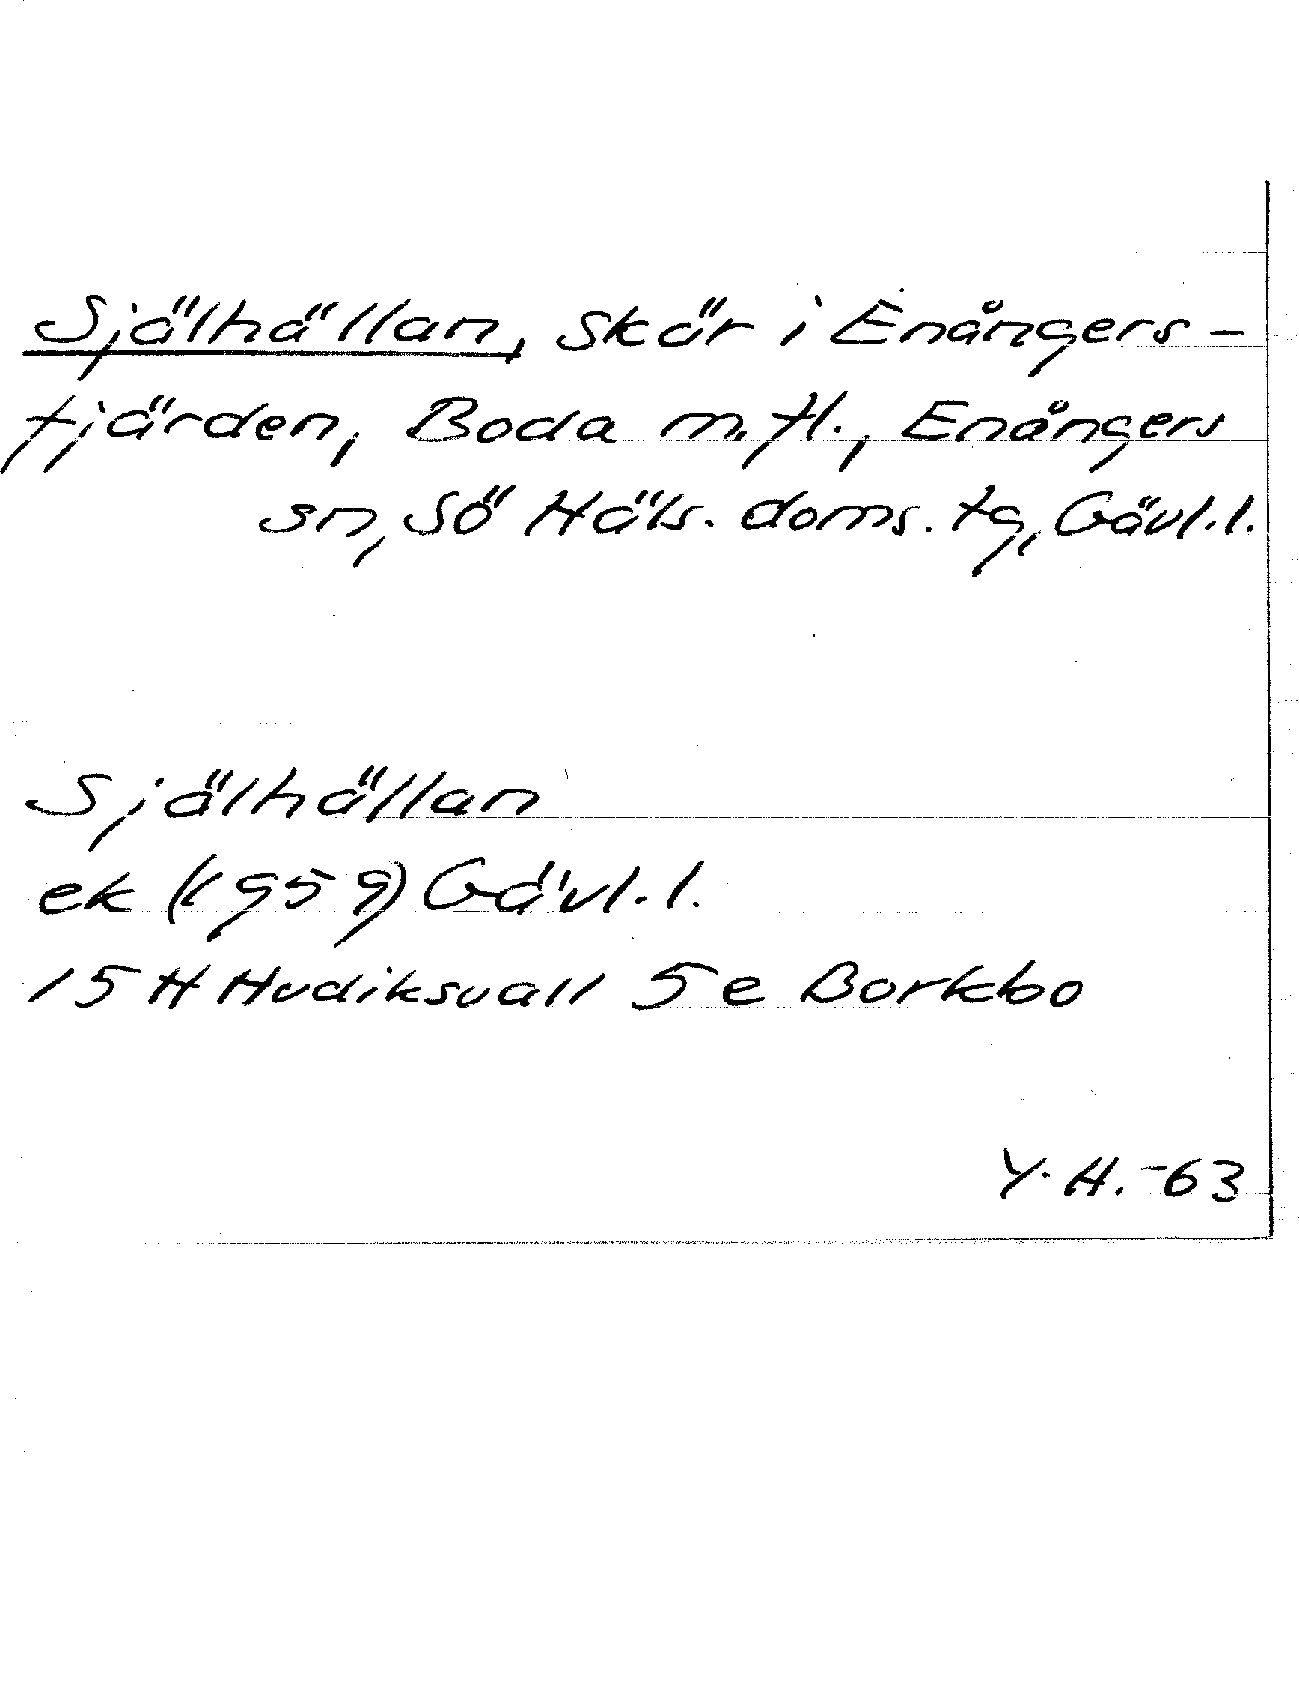 Själhällan, skär i Enångers-
fjärden, Boda m.fl., Enångers
sn, Sö Häls. doms. tg, Gävl.l.
Själhällan
ek (1959) Gävl.l.
15 H Hudiksvall 5 e Borkbo
Y.H.-63